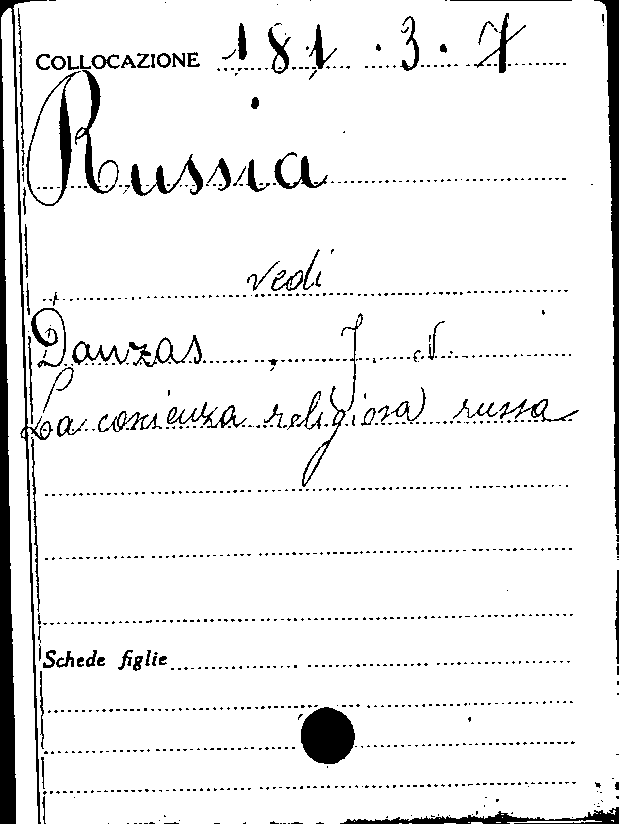 COLLOCAZIONE 181.3.7
Russia
vedi
Danzas, J. N.
La coscienza religiosa russa
Schede figlie